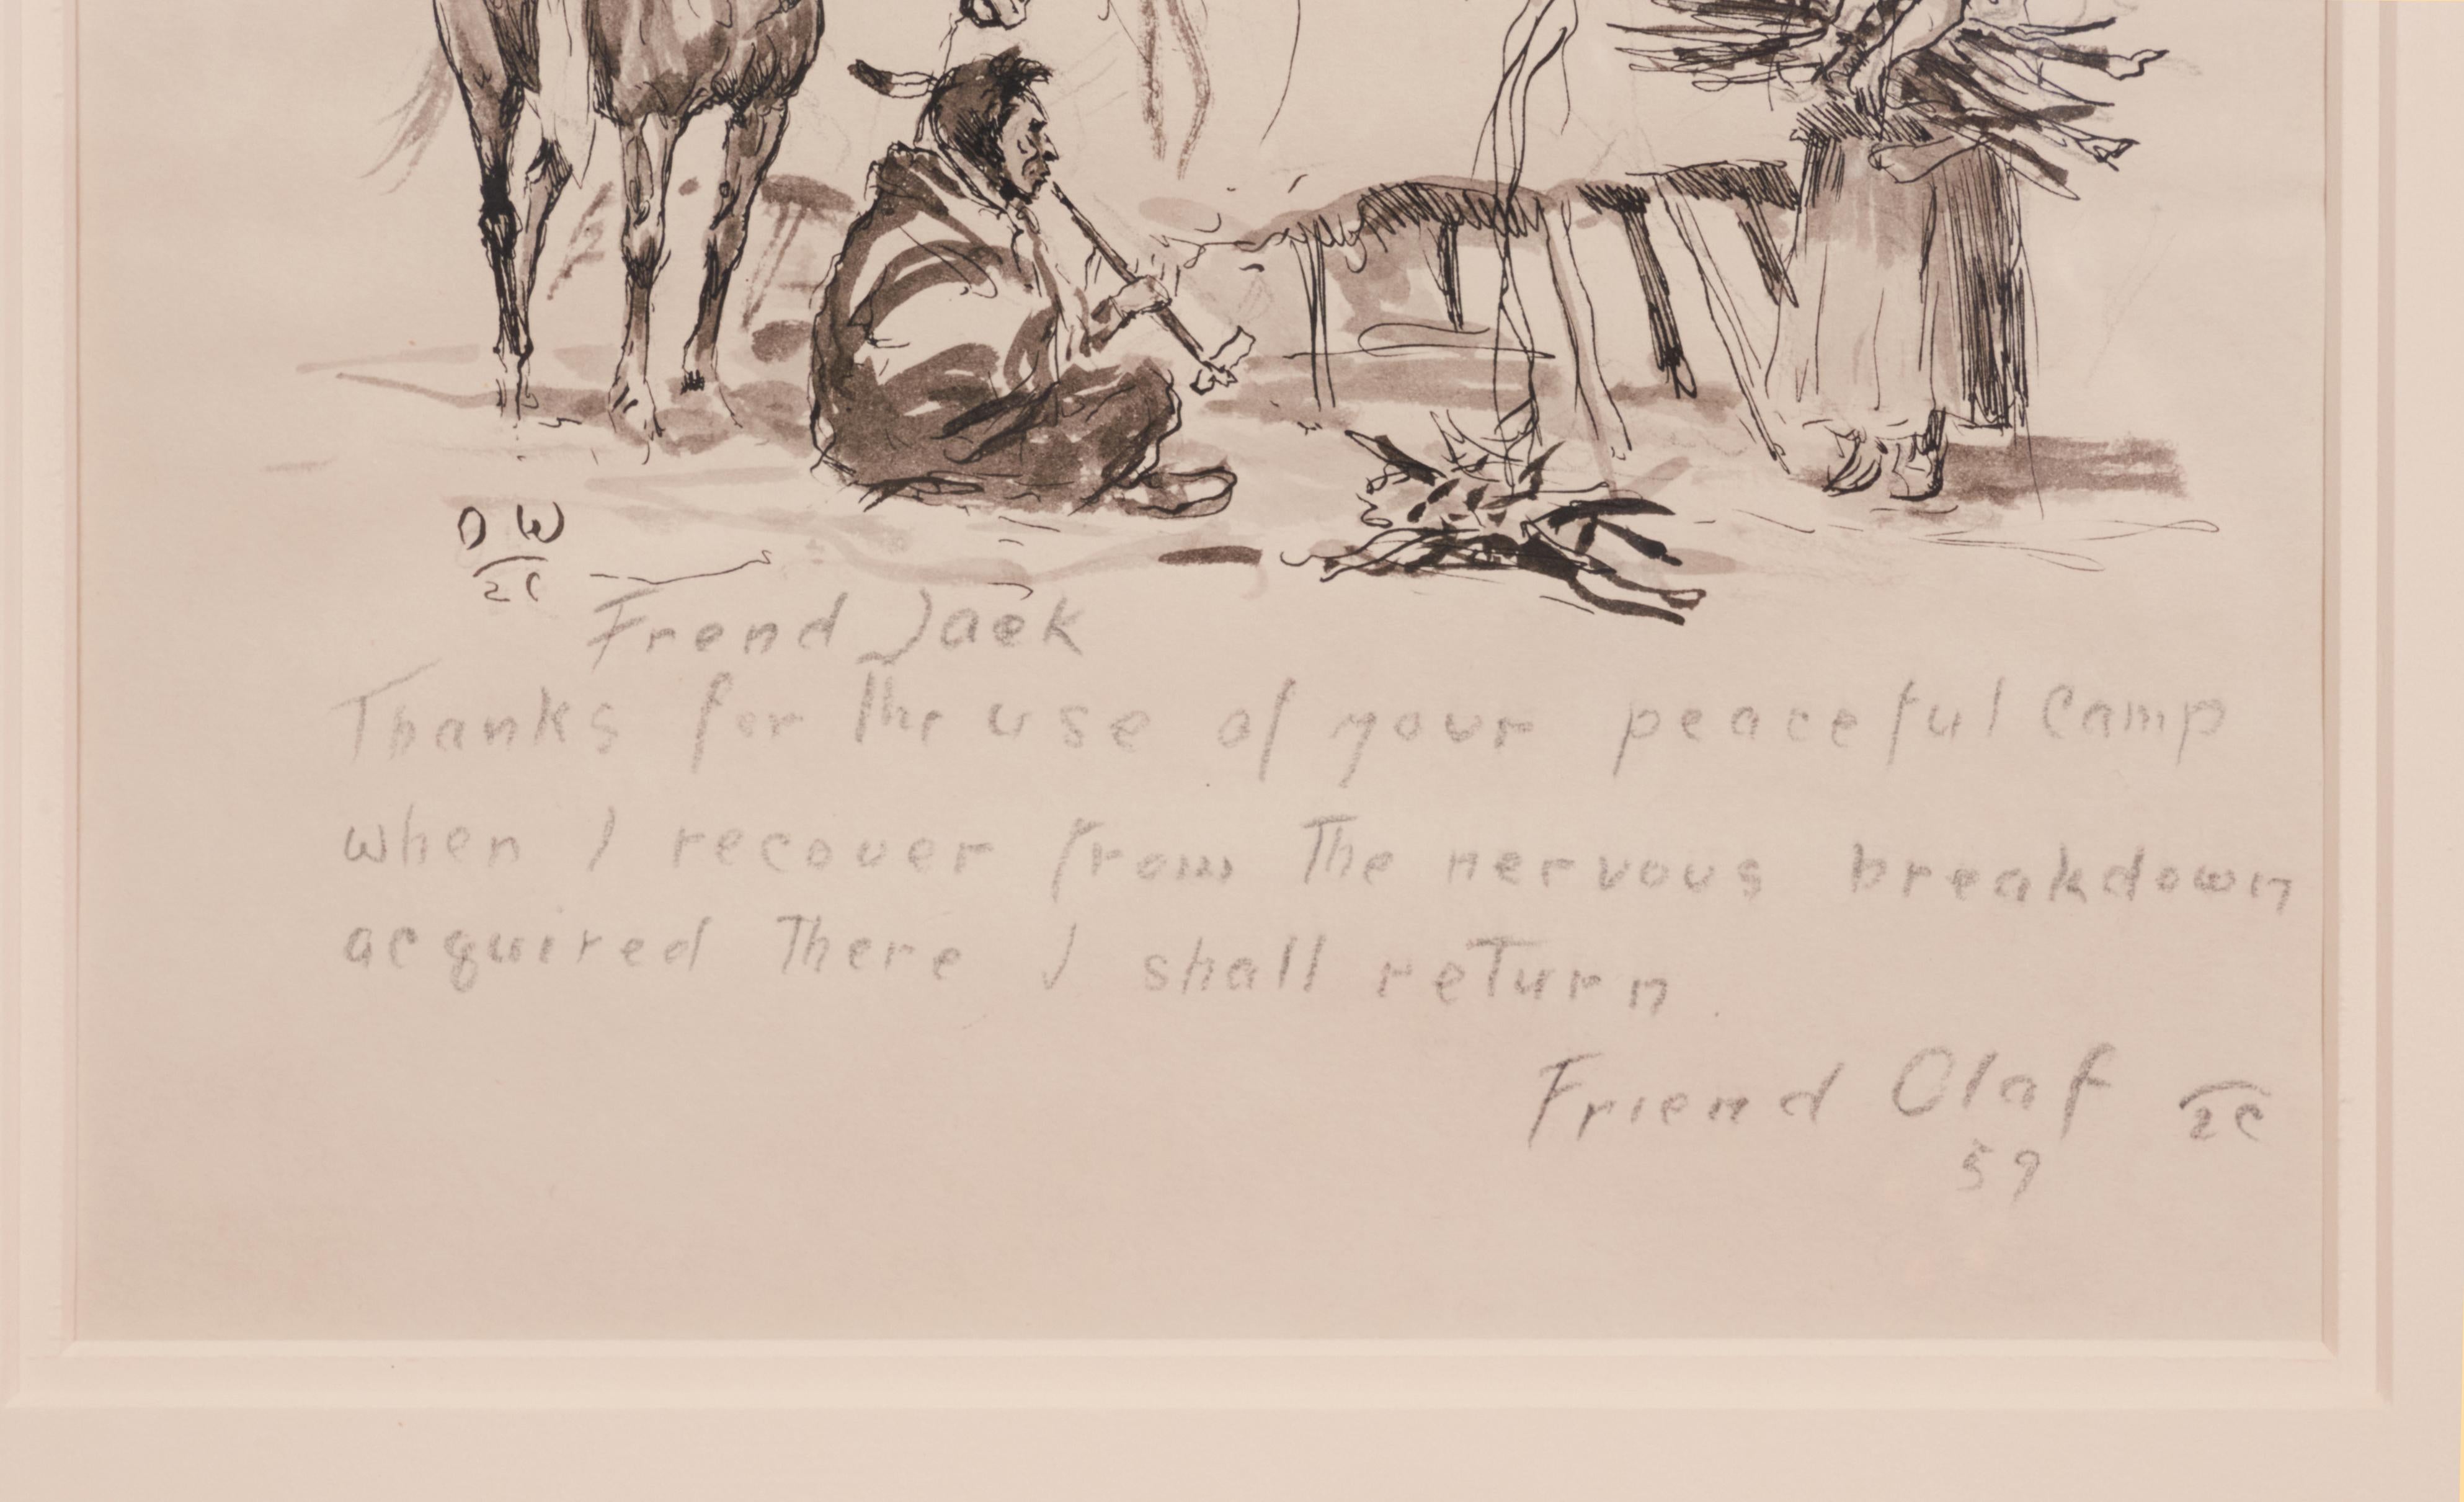 O W
2C
Frend Jack
Thanks for The use of your peaceful Camp
when I recover from The nervous breakdown
acquired There I shall return.
Friend Olaf 2C
59